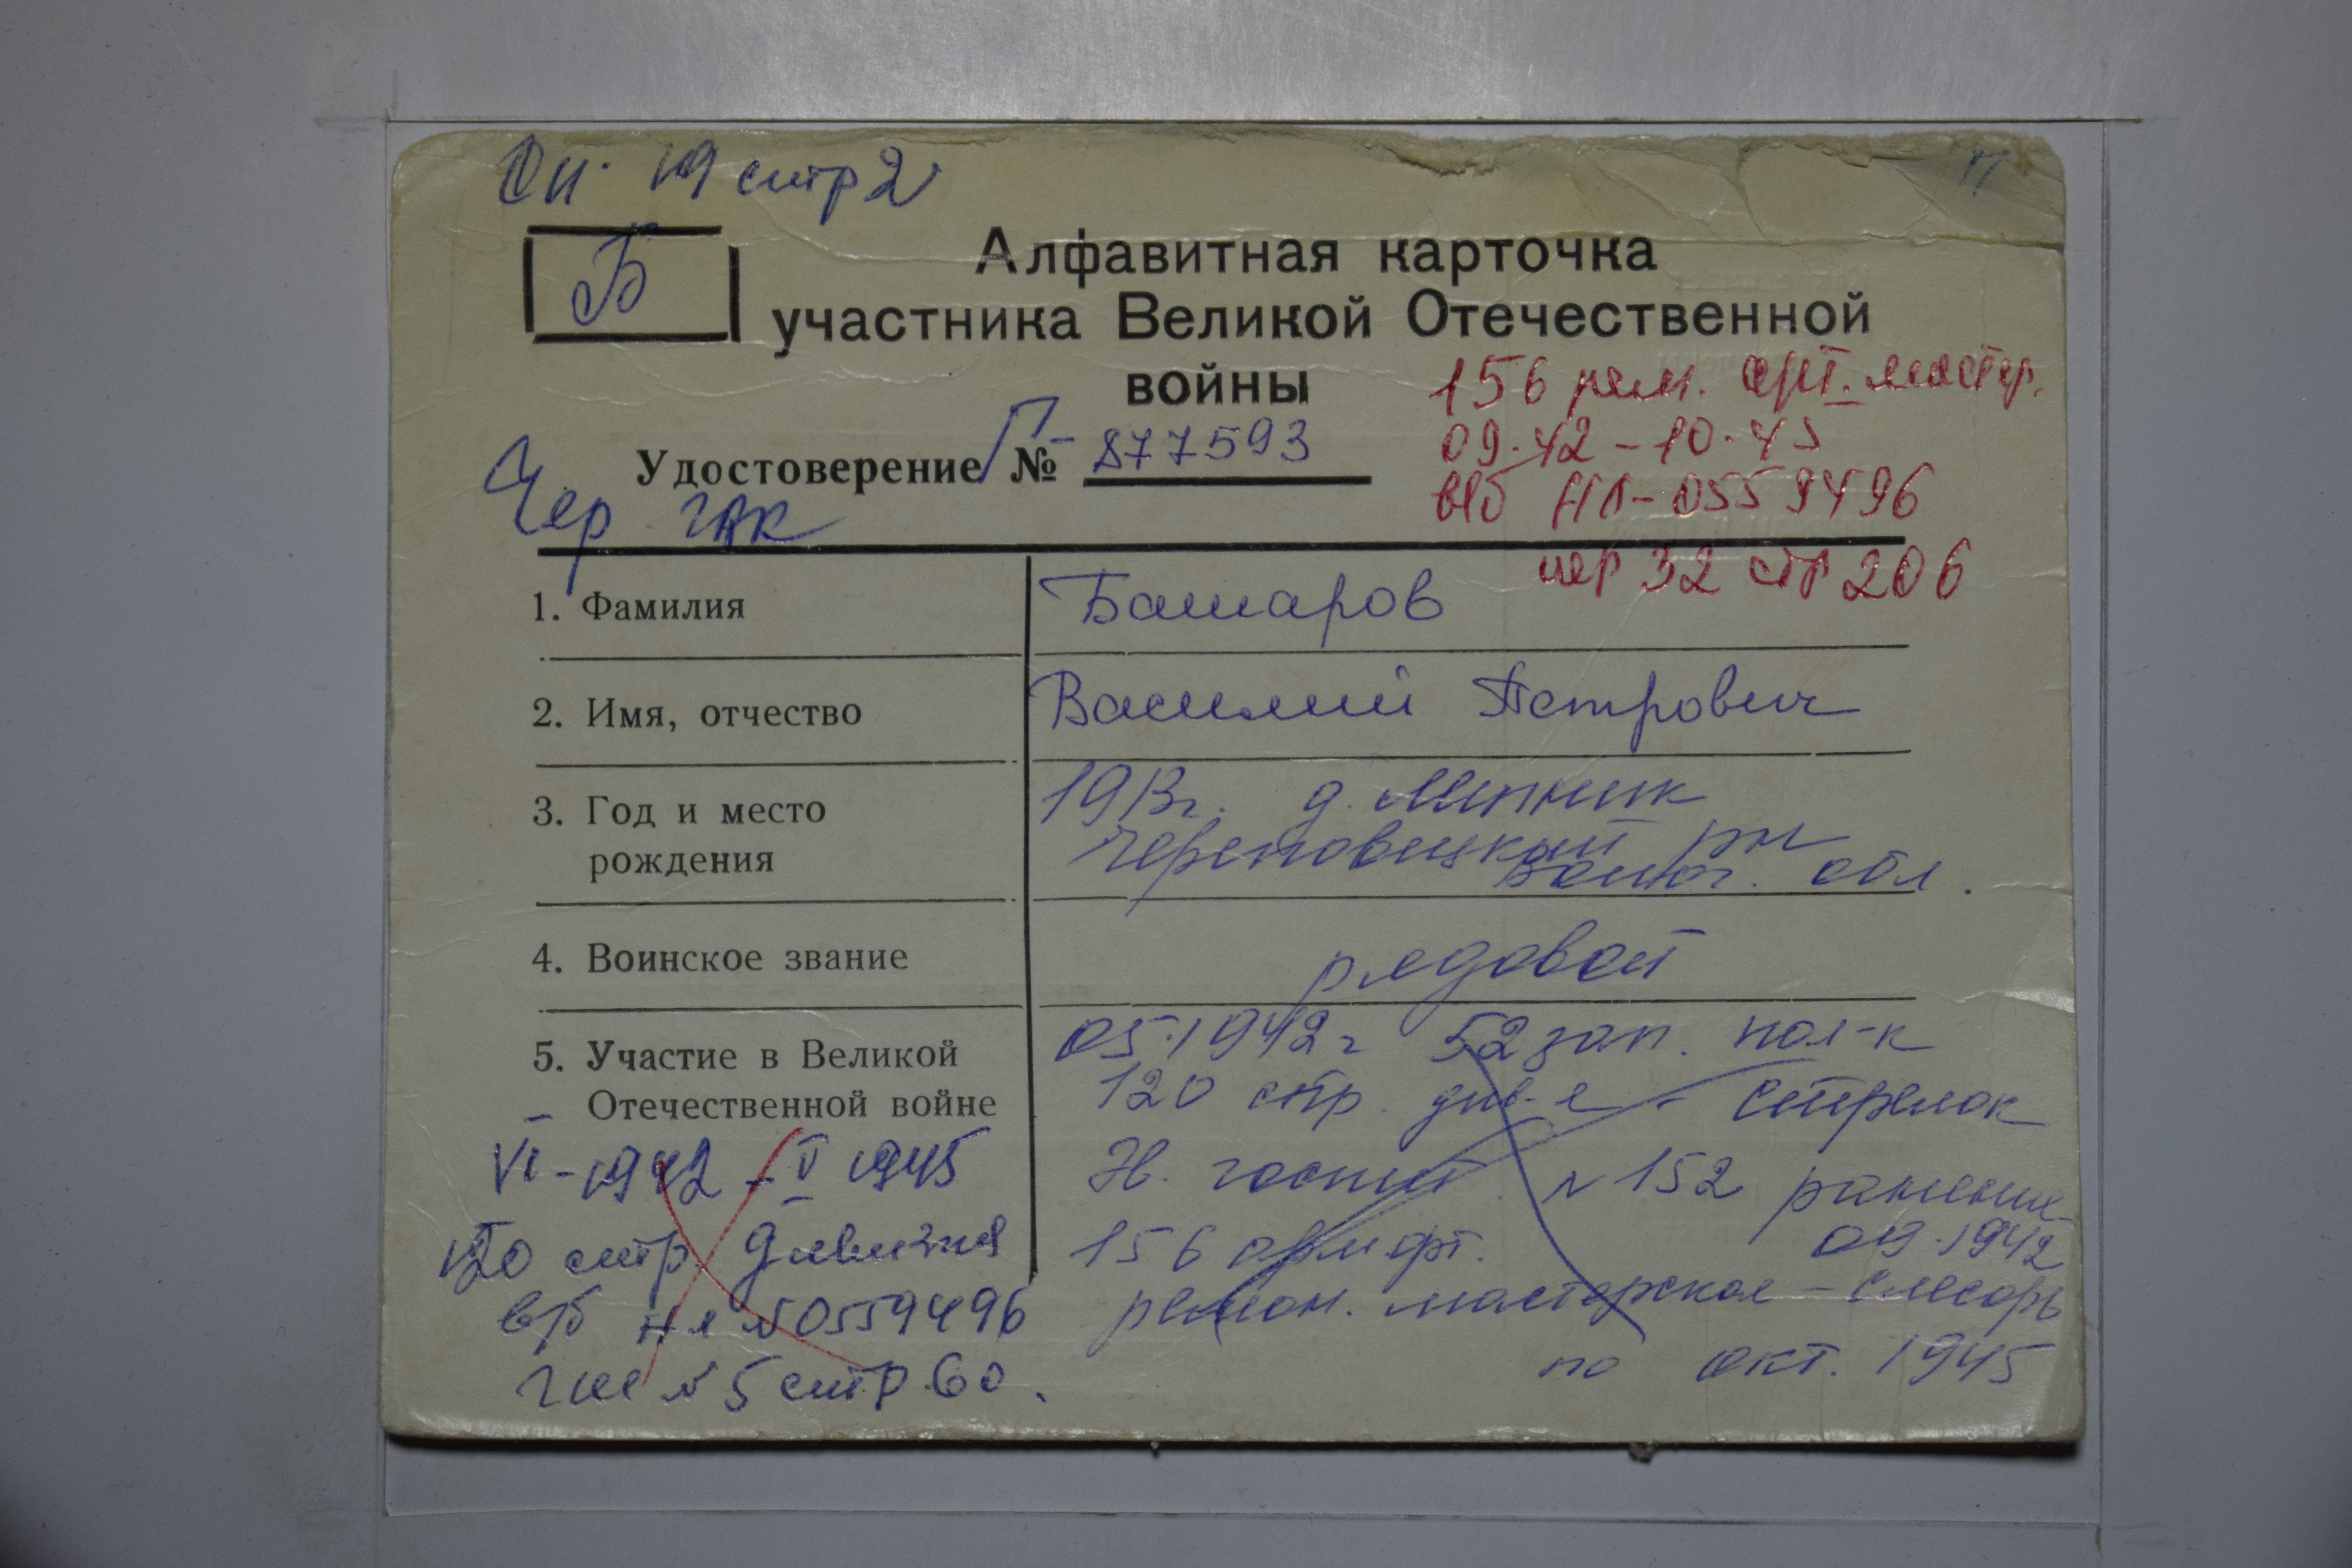 Сп. 19 стр 2
Б
Алфавитная карточка
участника Великой Отечественной
войны
156 рем. арт. мастер.
Удостоверение Г № - 877593
09.42 - 10.45
в/б НЛ-0559496
Чер
чер 32 стр 206
1. Фамилия Башаров
2. Имя, отчество Василий Петрович
3. Год и место рождения 1913г. д.
Череповецкий рн
Волог. обл.
4. Воинское звание рядовой
5. Участие в Великой Отечественной войне
05.1942г 52 зап. пол-к
120 стр. див-я - стрелок
№ 152 ранение
09.1942
156
ремон. мастерская - слесарь
по окт. 1945
VI-1942 - V 1945
120 стр. дивизия
в/б НЛ №0559496
№5 стр. 60.